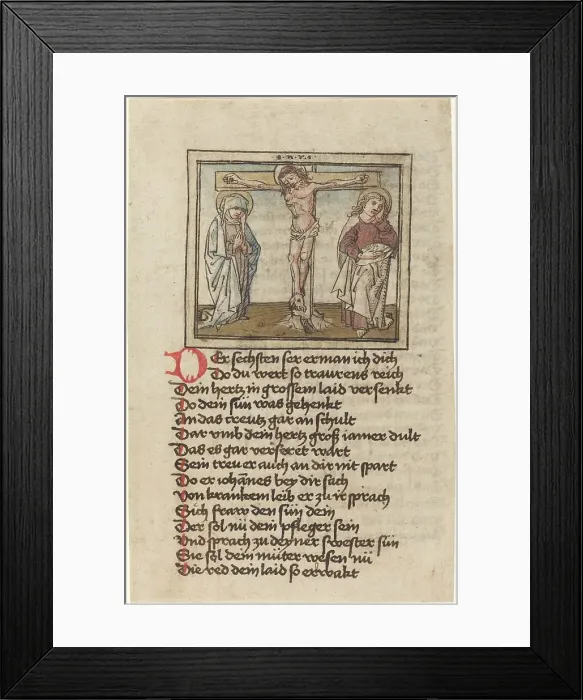 I·N·R·I
Der sechsten ser erman ich dich
Do du wert so traurens reich
Dein hertz in grossem laid versenkt
Do dein sun was gehenkt
An das creutz gar an schult
Dar vmb dein hertz groß iamer dult
Das es gar verseret wart
Sein treu er auch an dir nit spart
Do er iohānes bey dir sach
Von krankem leib er zu ir sprach
Sich fraw den sun dein
Der sol nū dein pfleger sein
Vnd sprach zu deyner swester sun
Sie sol dein mūter wesen nū
Die red dem laid so erwakt